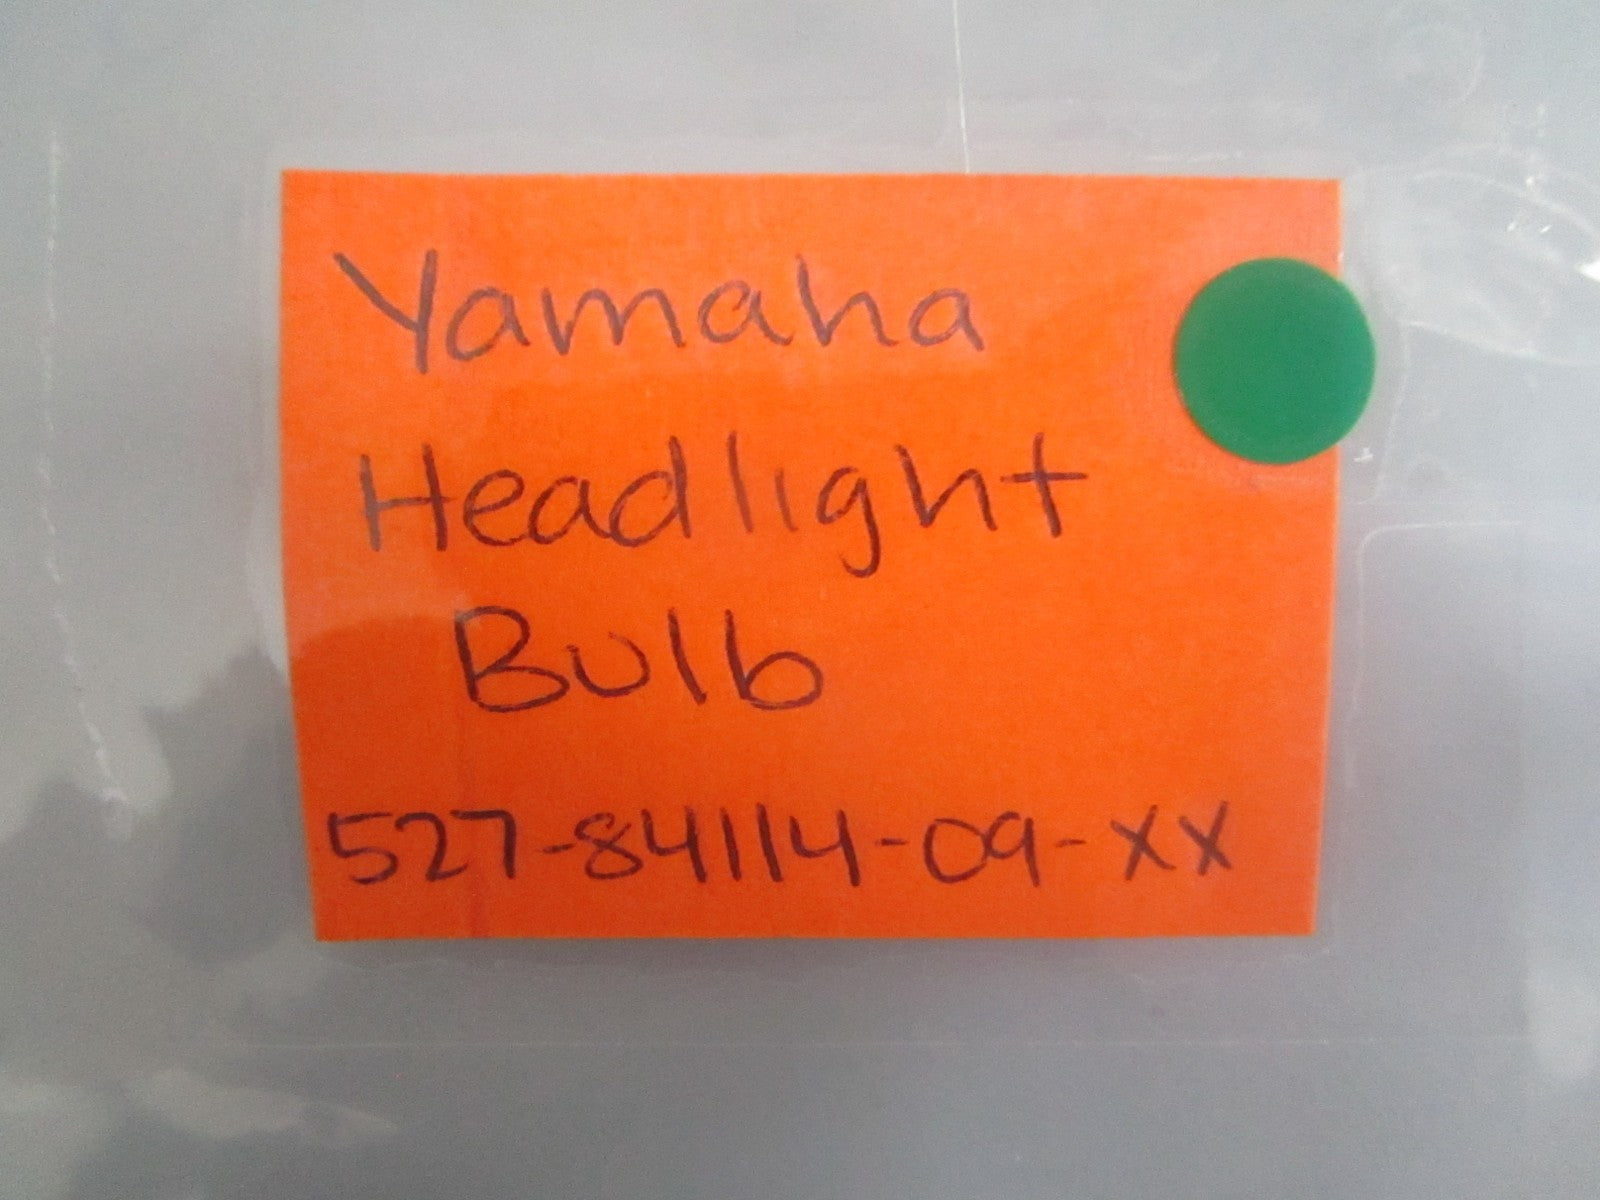 Yamaha
Headlight
Bulb
527-84114-09-XX